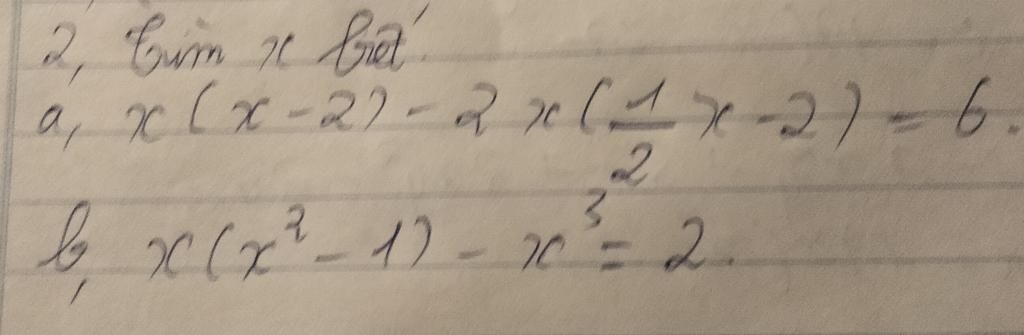 2, Tìm x biết
a, x(x-2) - 2x(\frac{1}{2}x-2) = 6.
b, x(x²-1) - x³ = 2.